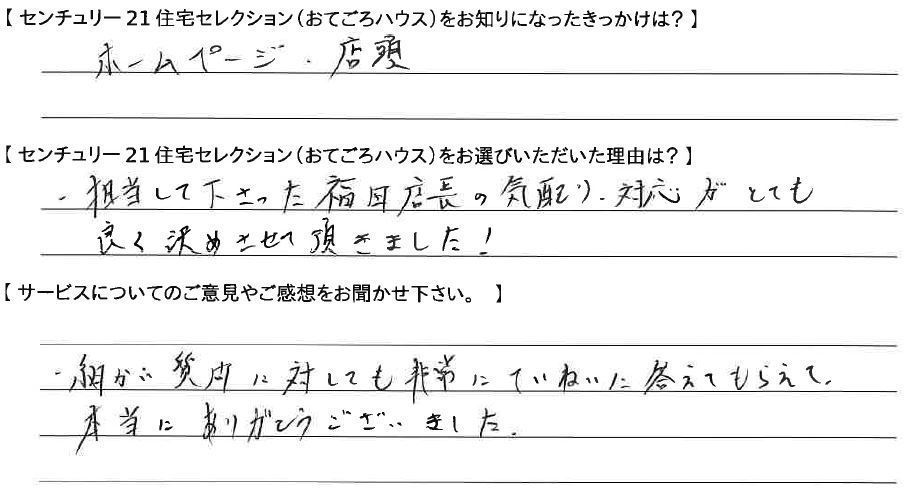 【 センチュリー21住宅セレクション（おてごろハウス）をお知りになったきっかけは？】
ホームページ . 店頭
【 センチュリー21住宅セレクション（おてごろハウス）をお選びいただいた理由は？】
・担当して下さった福田店長の気配り、対応がとても
良く決めさせて頂きました！
【 サービスについてのご意見やご感想をお聞かせ下さい。 】
・細かい質問に対しても非常にていねいに答えてもらえて、
本当にありがとうございました.